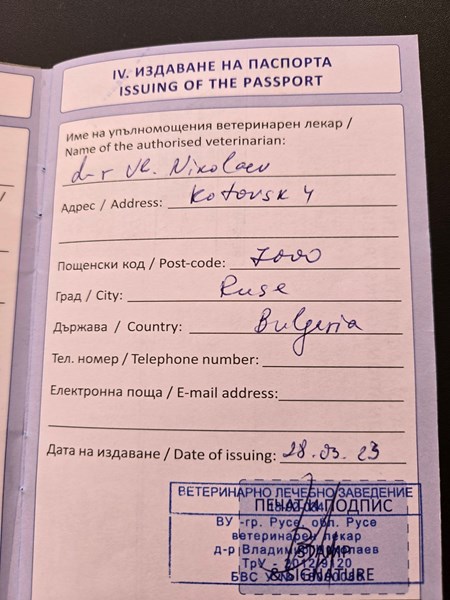 IV. ИЗДАВАНЕ НА ПАСПОРТА
ISSUING OF THE PASSPORT
Име на упълномощения ветеринарен лекар /
Name of the authorised veterinarian:
d-r Vl. Nikolaev
Адрес / Address: Kotovsk 4
Пощенски код / Post-code: 7000
Град / City: Ruse
Държава / Country: Bulgeria
Тел. номер / Telephone number:
Електронна поща / E-mail address:
Дата на издаване / Date of issuing: 28.03.23
ВЕТЕРИНАРНО ЛЕЧЕБНО ЗАВЕДЕНИЕ
ПЕЧАТ И ПОДПИС
ВУ -гр. Русе, обл. Русе
ветеринарен лекар
д-р Владимир Николаев
STAMP
& SIGNATURE